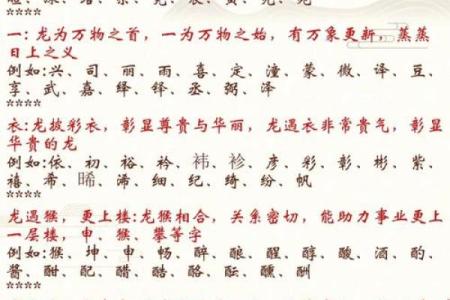 一:龙为万物之首，一为万物之始，有万象更新，蒸蒸
日上之义
例如:兴、司、丽、雨、喜、定、潼、蒙、微、译、豆、
享、武、嘉、绎、铎、丞、弼、泽
****
衣:龙披彩衣，彰显尊贵与华丽，龙遇衣非常贵气，彰显
华贵的龙
例如:依、初、裕、衿、袆、袗、彦、彩、彰、彬、紫、
禧、希、晞、浠、细、纪、绮、纷、帆
****
龙遇猴，更上楼:龙猴相合，关系密切，能助力事业更上
一层楼，申、猴、攀等字
例如:猴、坤、申、畅、醉、酿、醒、醇、酸、酒、酌、
酱、酣、配、醋、酷、酩、酝、醺、酬
****